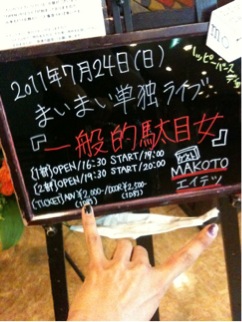 2011年7月24日(日)
ハッピーバースデー
まいまい単独ライブ
『一般的駄目女』
(1部)OPEN/16:30 START/17:00
(2部)OPEN/19:30 START/20:00
(TICKET)ADV ¥2,000-/DOOR ¥2,500-
(1D付) (1D付)
ゲスト
MAKOTO
エイテツ